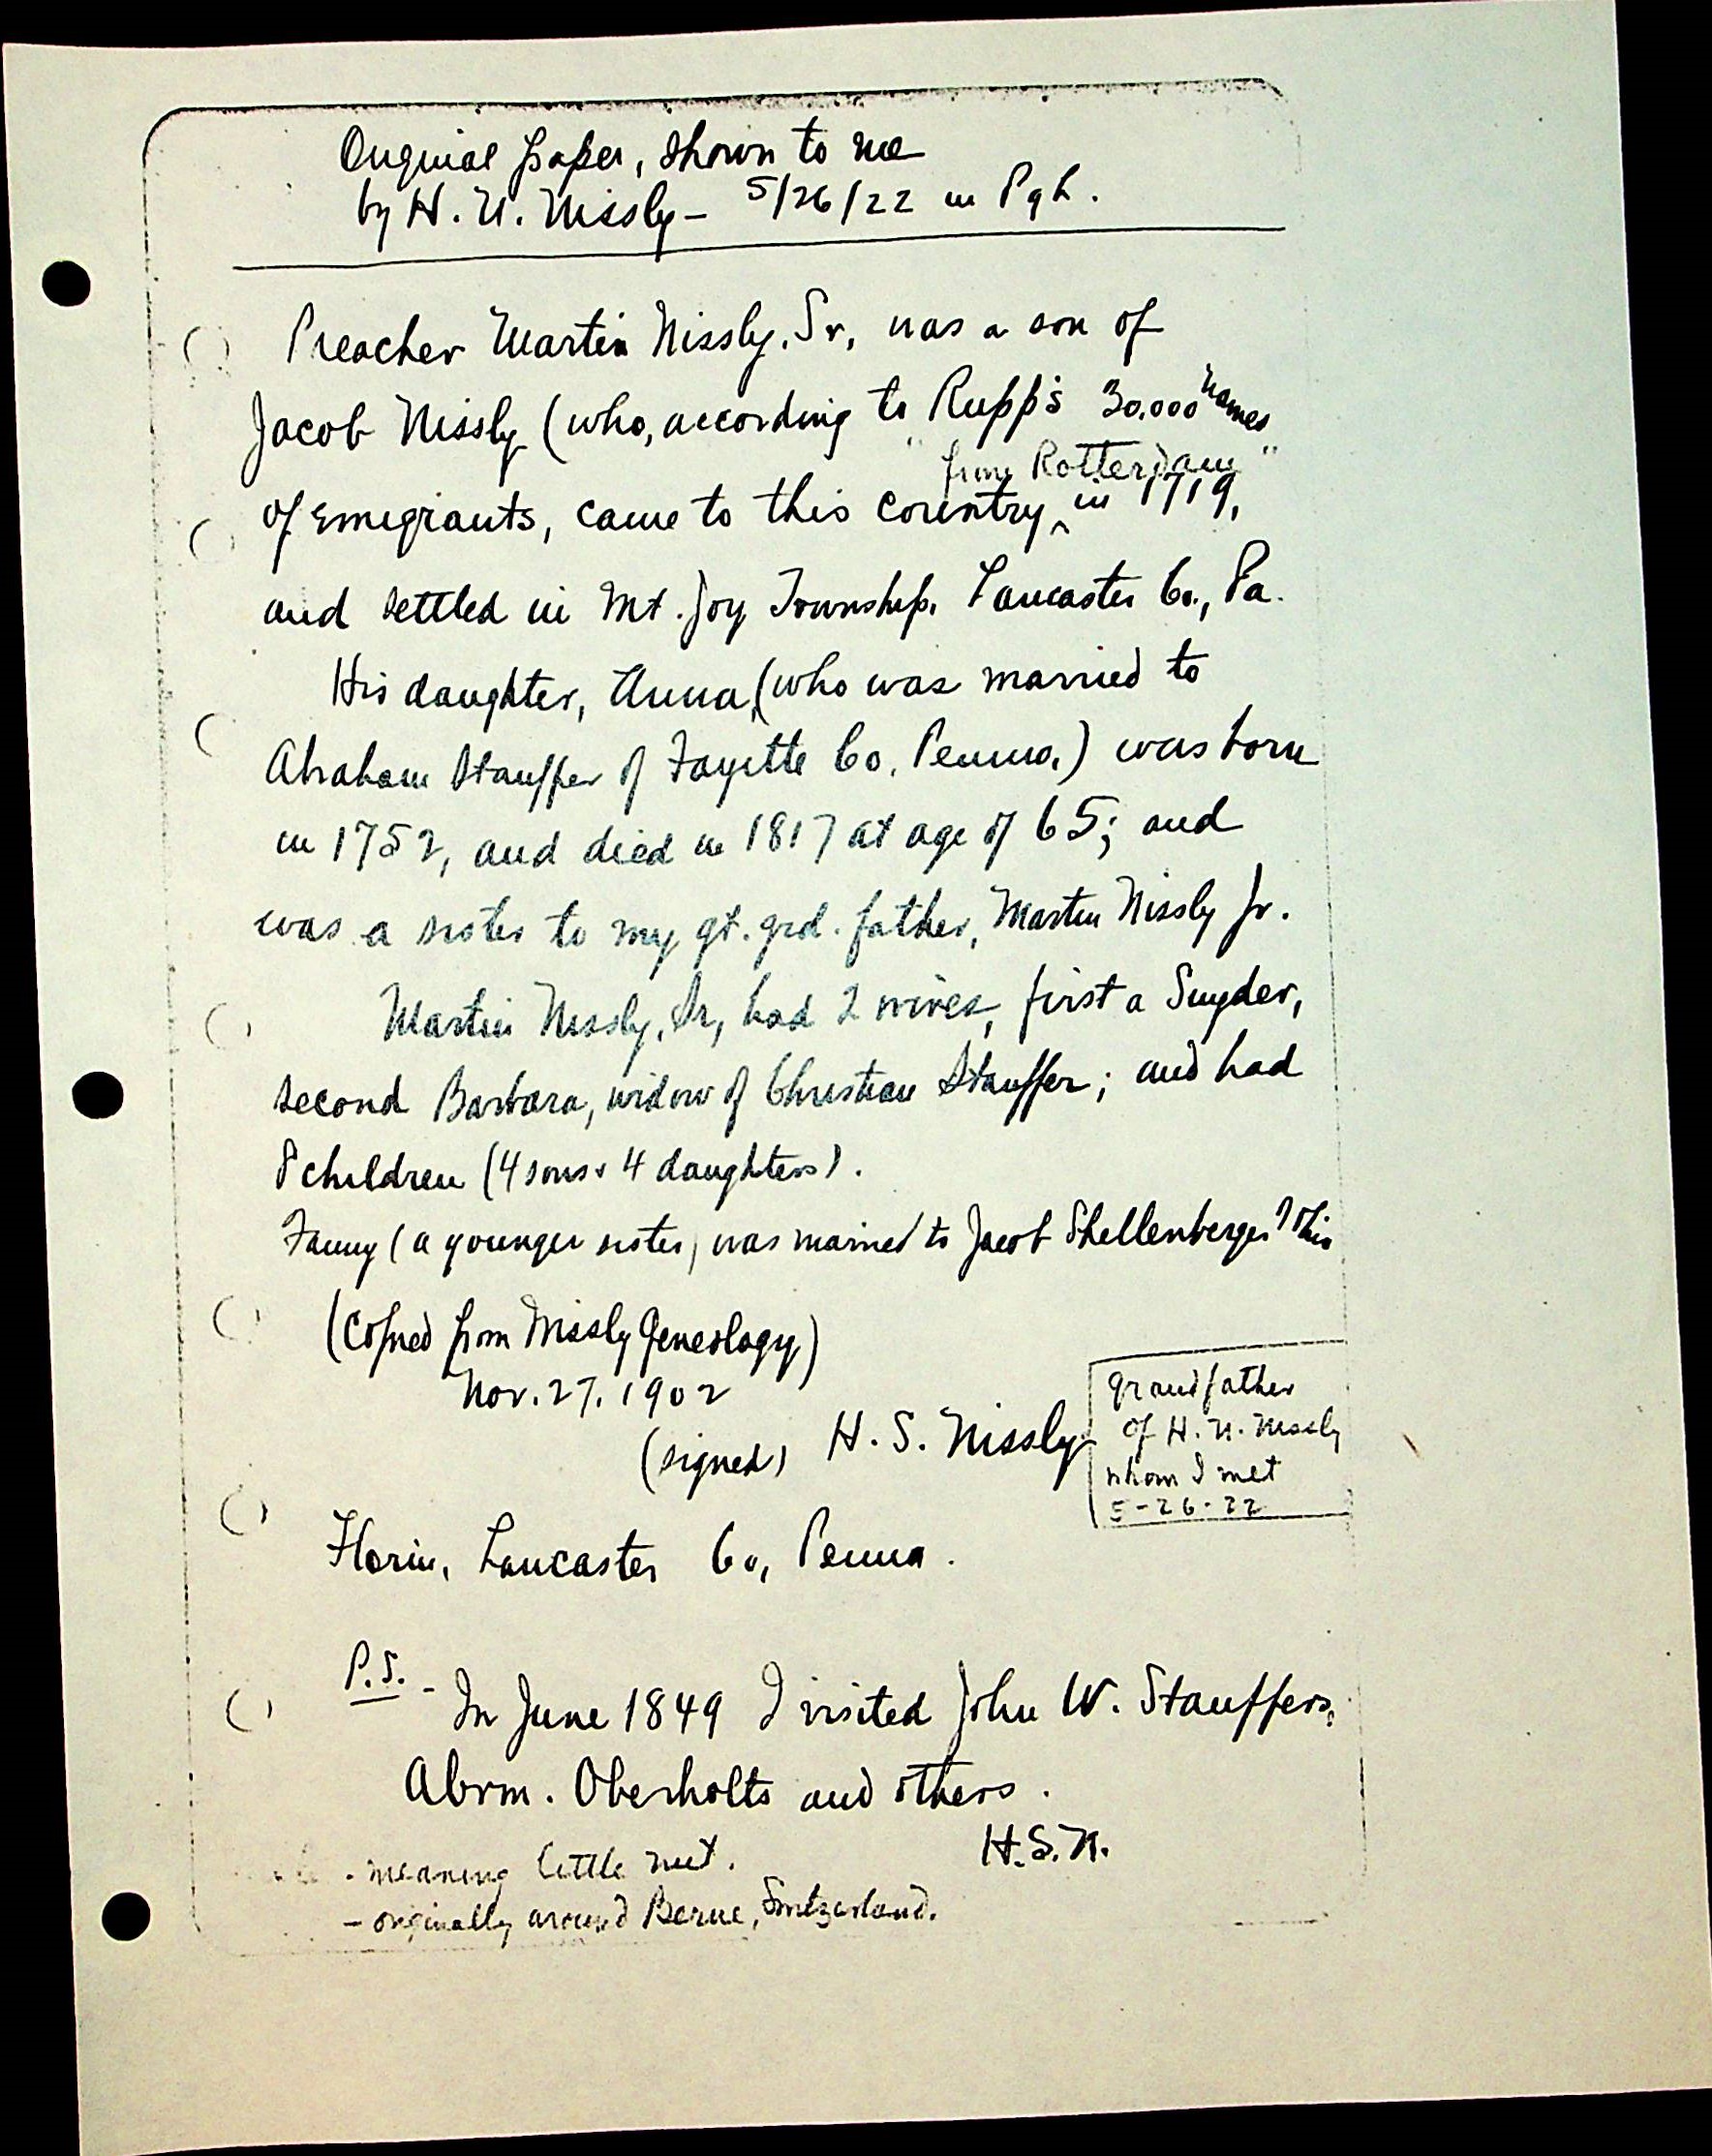 Original paper, shown to me
by H. N. Nissly - 5/26/22 in Pgh.
Preacher Martin Nissly, Sr, was a son of
Jacob Nissly (who, according to Rupp's 30.000 names
"from Rotterdam"
of Emigrants, came to this country ^ in 1719,
and settled in Mt. Joy Township, Lancaster Co., Pa.
His daughter, Anna, (who was married to
Abraham Stauffer of Fayette Co, Penna.) was born
in 1752, and died in 1817 at age of 65; and
was a sister to my gt. grd. father, Martin Nissly Jr.
Martin Nissly, Sr, had 2 wives, first a Snyder,
second Barbara, widow of Christian Stauffer; and had
8 children (4 sons & 4 daughters).
Fanny (a younger sister) was married to Jacob Shellenberger? this
(Copied from Nissly Geneology)
Nov. 27, 1902
(signed) H. S. Nissly
grandfather
of H. N. Nissly
whom I met
5-26-22
Florin, Lancaster Co, Penna.
P.S. - In June 1849 I visited John W. Stauffers,
Abrm. Oberholts and others.
H.S.N.
- meaning little nut.
- originally around Berne, Switzerland.